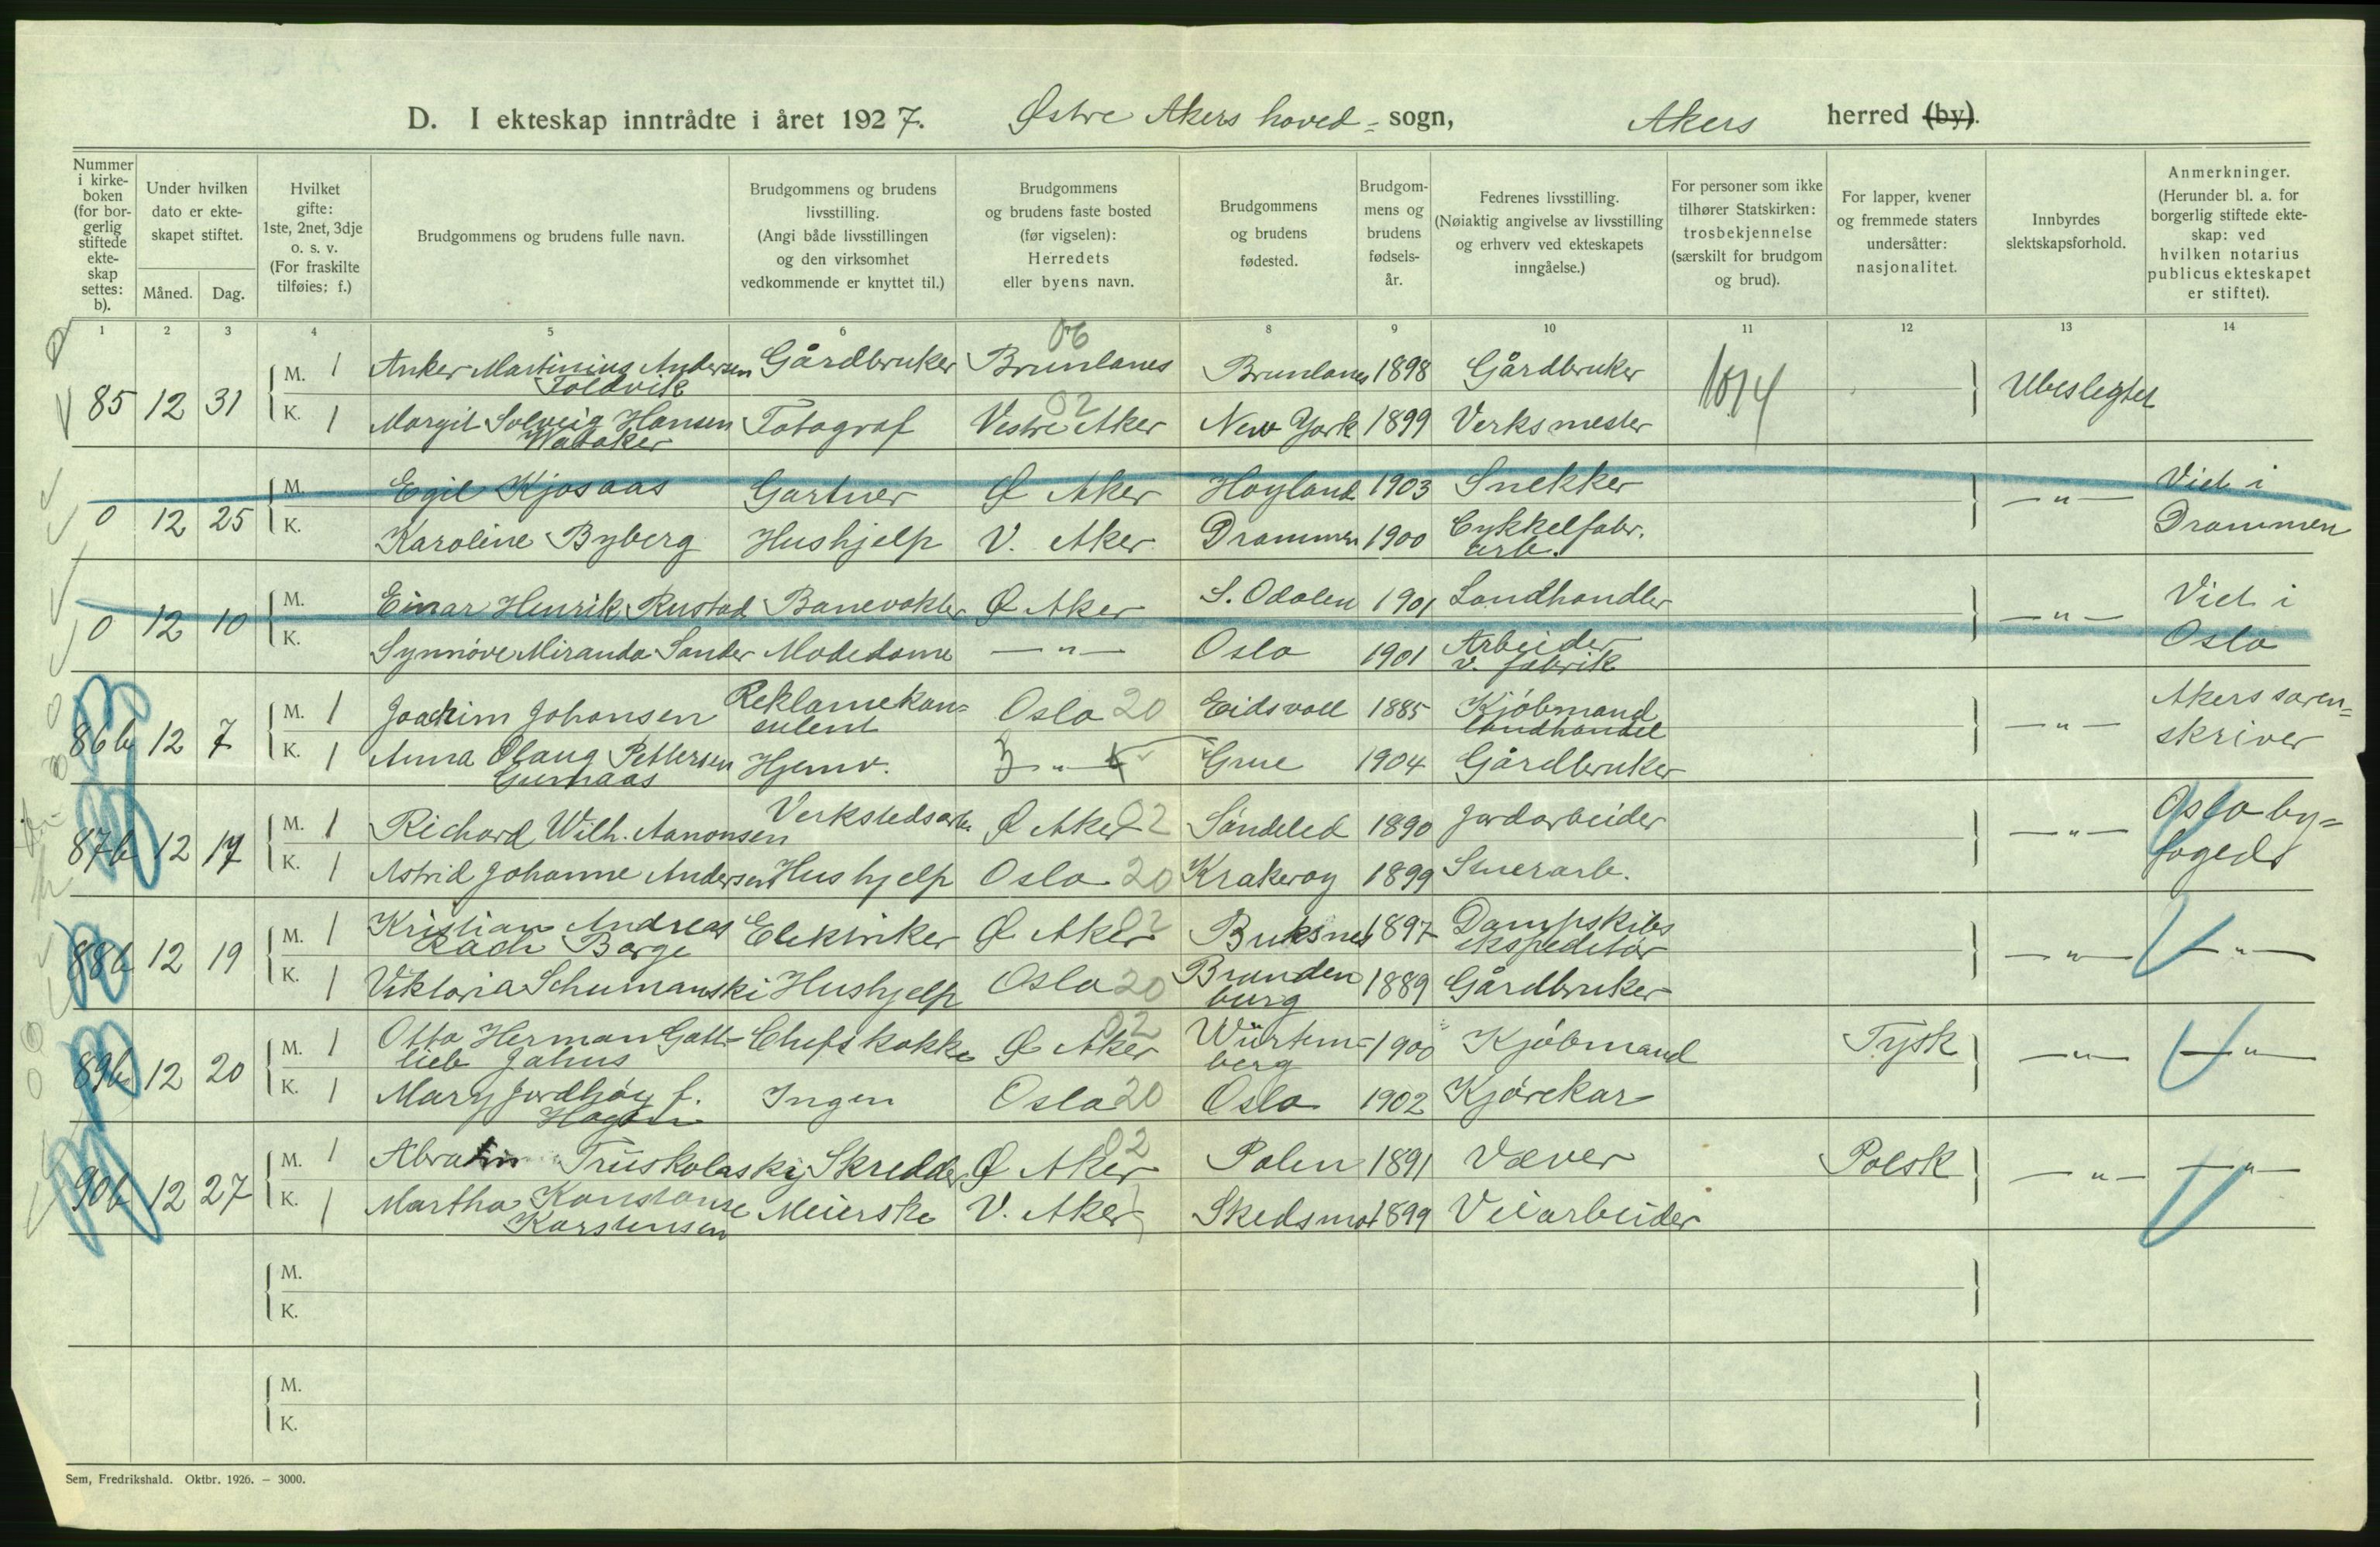 D. I ekteskap inntrådte i året 1927. Østre Akers hoved- sogn, Akers herred (by).
Nummer i kirkeboken (for borgerlig stiftede ekteskap settes: b).
Under hvilken dato er ekteskapet stiftet.
Måned. Dag.
Hvilket gifte: 1ste, 2net, 3dje o. s. v. (For fraskilte tilføies; f.)
Brudgommens og brudens fulle navn.
Brudgommens og brudens livsstilling. (Angi både livsstillingen og den virksomhet vedkommende er knyttet til.)
Brudgommens og brudens faste bosted (før vigselen): Herredets eller byens navn.
Brudgommens og brudens fødested.
Brudgommens og brudens fødselsår.
Fedrenes livsstilling. (Nøiaktig angivelse av livsstilling og erhverv ved ekteskapets inngåelse.)
For personer som ikke tilhører Statskirken: trosbekjennelse (særskilt for brudgom og brud).
For lapper, kvener og fremmede staters undersåtter: nasjonalitet.
Innbyrdes slektskapsforhold.
Anmerkninger. (Herunder bl. a. for borgerlig stiftede ekteskap: ved hvilken notarius publicus ekteskapet er stiftet).
1 2 3 4 5 6 8 9 10 11 12 13 14
06
85 12 31 M. 1 Anker Martinius Andersen Foldvik Gårdbruker Brunlanes Brunlanes 1898 Gårdbruker 1014 Ubeslegtet
K. 1 Margit Solveig Hansen Wataker Fotograf Vestre Aker 02 New York 1899 Verksmester
0 12 25 M. Egil Kjosaas Gartner Ø Aker Høyland 1903 Snekker — " — Viet i Drammen
K. Karoline Byberg Hushjelp V. Aker Drammen 1900 Cykkelfabr. arb.
0 12 10 M. Einar Henrik Rustad Banevokter Ø Aker S. Odalen 1901 Landhandler — " — Viet i Oslo
K. Synnøve Miranda Sander Motedame — " — Oslo 1901 Arbeider v. fabrik
86b 12 7 M. 1 Joachim Johansen Reklamekonsulent Oslo 20 Eidsvoll 1885 Kjøbmand landhandel — " — Akers sorenskriver
K. 1 Anna Olaug Pettersen Hjemv. — " — Grue 1904 Gårdbruker
87b 12 17 M. 1 Richard Wilh. Aanonsen Verkstedsarb. Ø Aker 02 Søndeled 1890 Jordarbeider — " — Oslo byfoged
K. 1 Astrid Johanne Andersen Hushjelp Oslo 20 Krakerøy 1899 Stuerarb.
88b 12 19 M. 1 Kristian Andreas Zach Borge Elektriker Ø Aker 02 Buksnes 1897 Dampskibs ekspeditør — " — — " —
K. 1 Viktoria Schumanski Hushjelp Oslo 20 Brandenburg 1889 Gårdbruker
89b 12 20 M. 1 Otto Herman Gottlieb Jahns Chefskokke Ø Aker 02 Würtemberg 1900 Kjøbmand Tysk — " — — " —
K. 1 Mary Jordhøy f. Hagen Ingen Oslo 20 Oslo 1902 Kjørekar
90b 12 27 M. 1 Abrahim Truskolasky Skredder Ø Aker 02 Polen 1891 Væver Polsk — " — — " —
K. 1 Martha Konstanse Karstensen Meierske V. Aker Skedsmo 1899 Veiarbeider
M.
K.
M.
K.
Sem, Fredrikshald. Oktbr. 1926. — 3000.